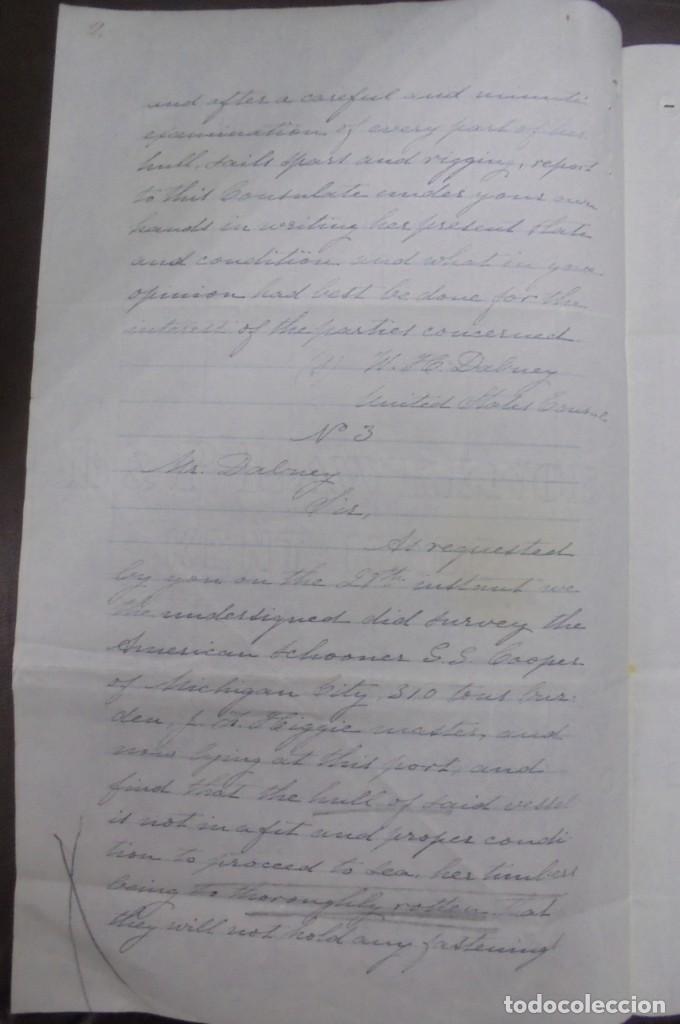 2.
and after a careful and minute
examination of every part of her
hull, sails spars and rigging, report
to this Consulate under your own
hands in writing her present state
and condition and what in your
opinion had best be done for the
interest of the parties concerned.
(s) W. H. Dabney
United States Consul
No 3
Mr. Dabney
Sir,
As requested
by you on the 27th instant we
the undersigned did survey the
American Schooner G.S. Cooper
of Michigan City 310 tons bur-
den, master, and
now lying at this port, and
find that the hull of said vessel
is not in a fit and proper condi
tion to proceed to sea, her timbers
being so thoroughly rotten that
they will not hold any fastening
todocoleccion